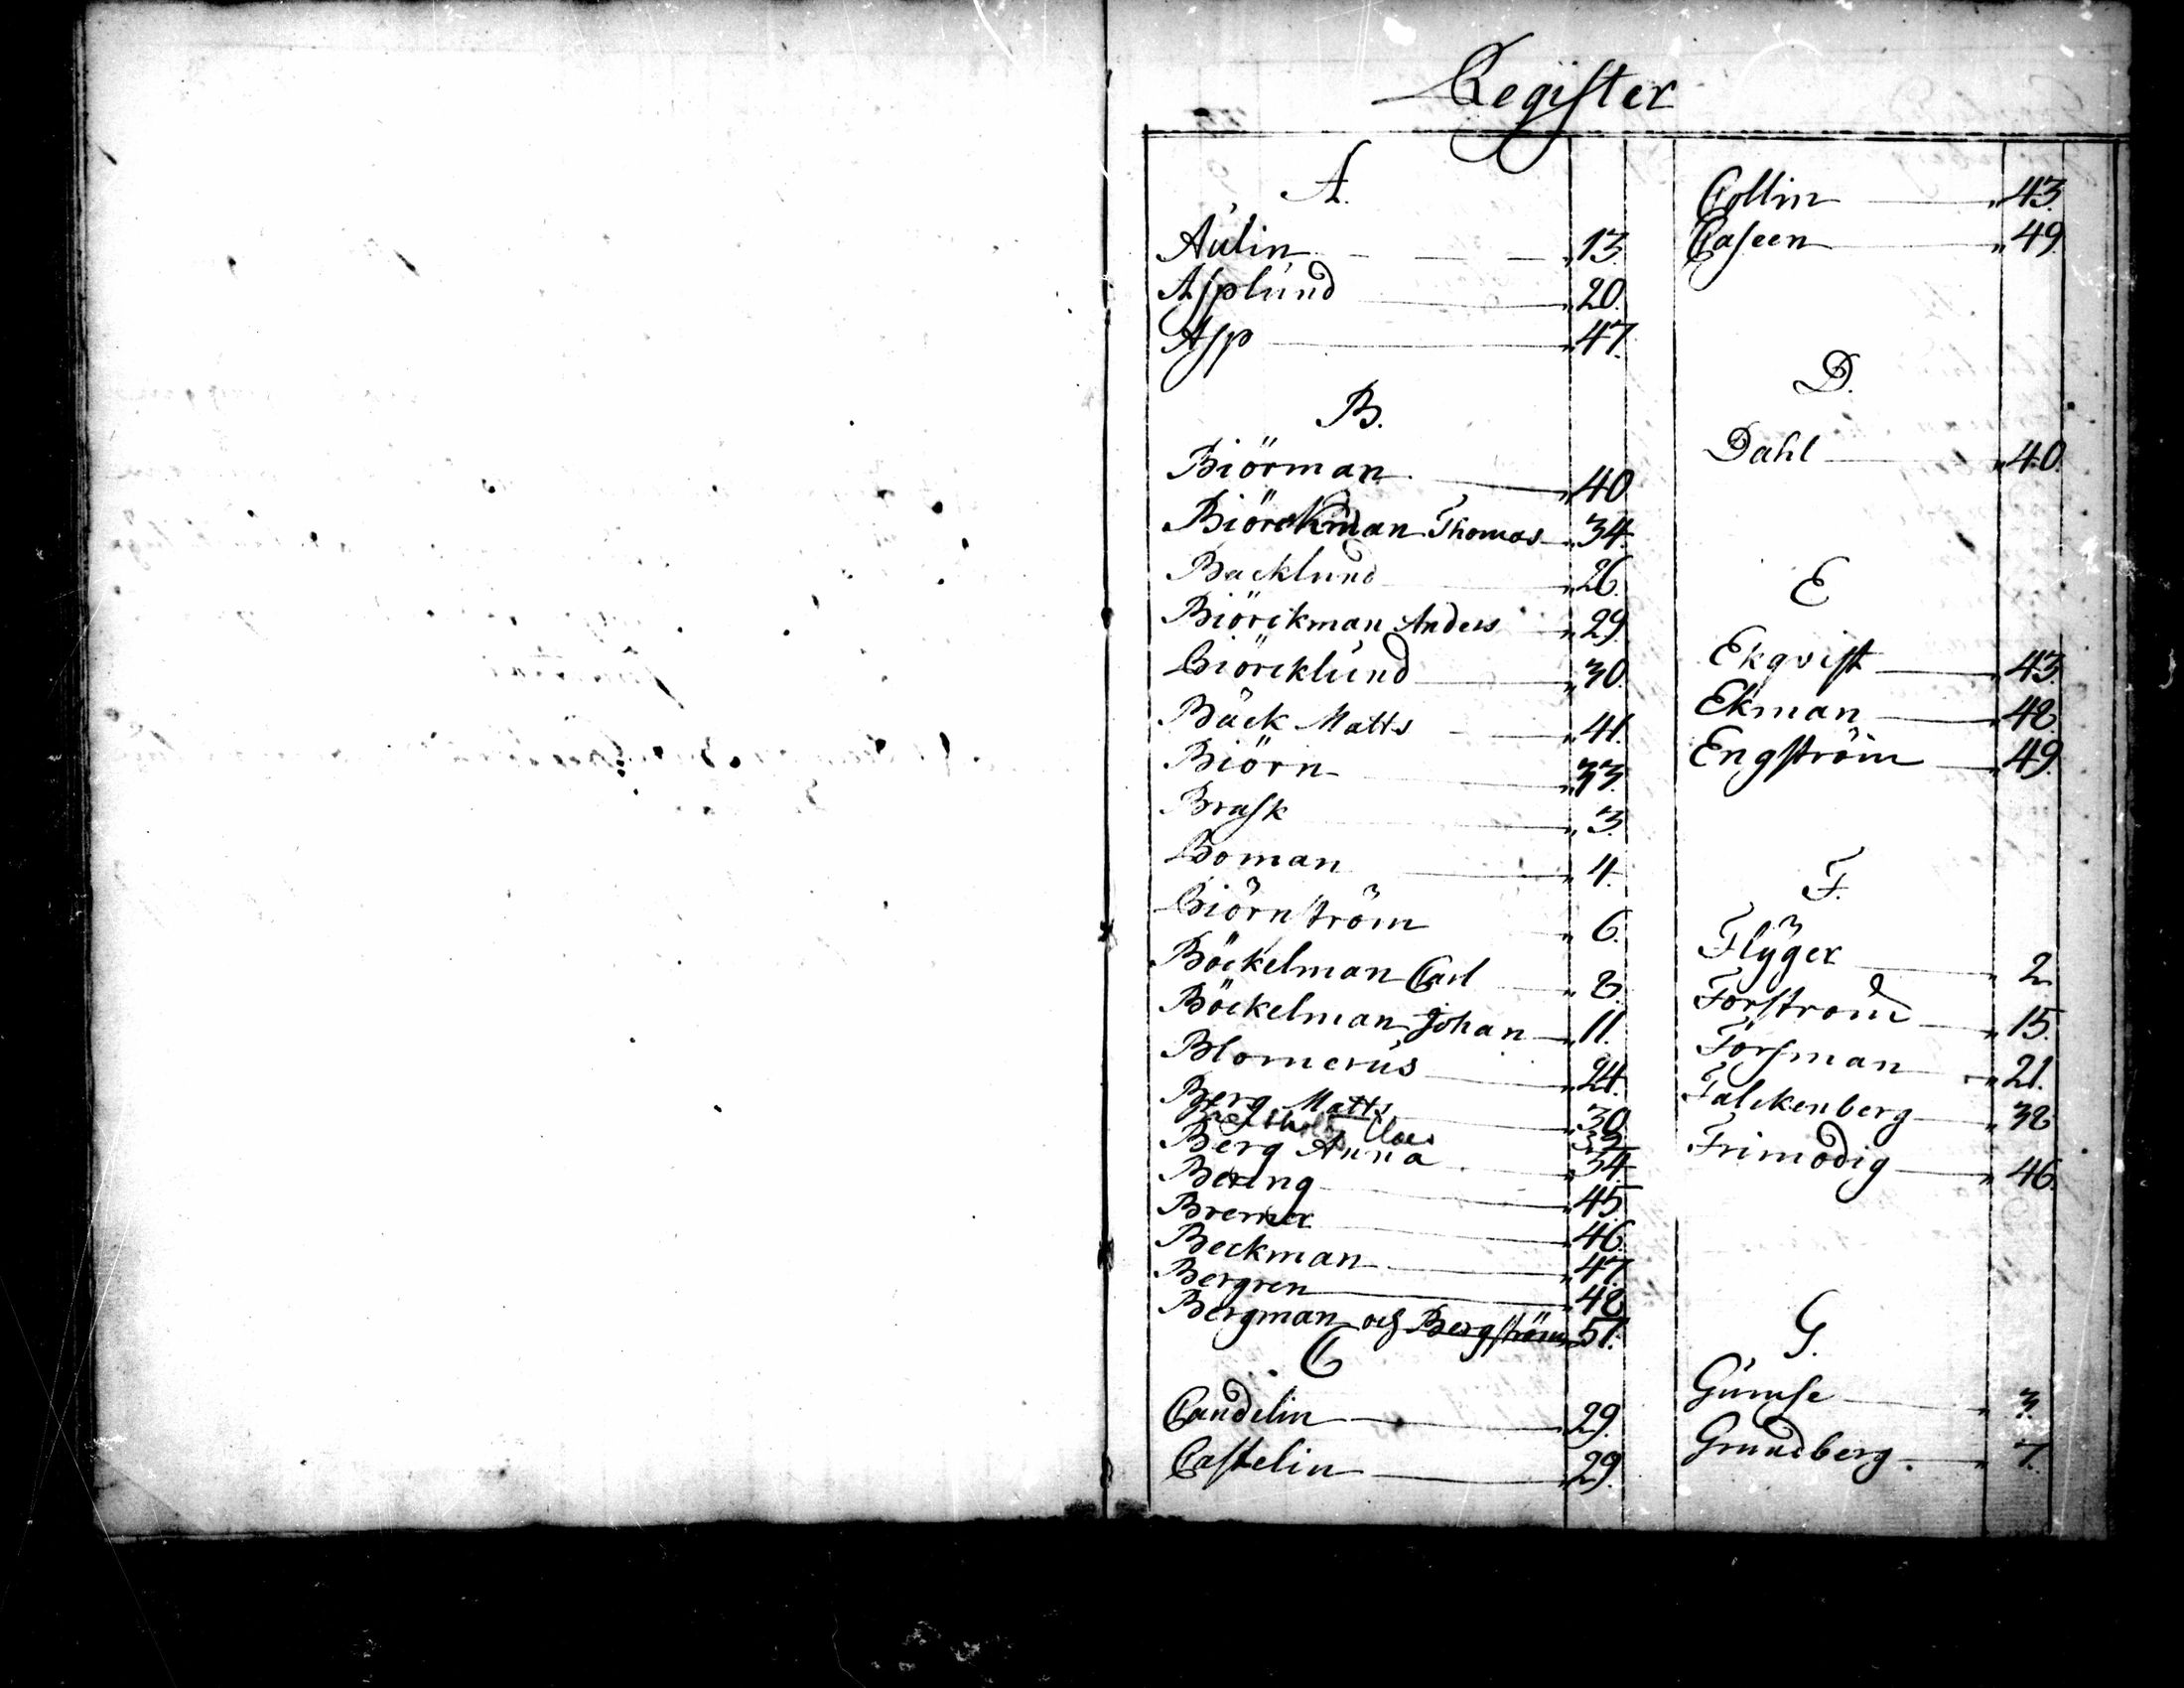 Register
A.
Aulin 13.
Asplund 20.
Asp 47.
B.
Biörman 40.
Biörckman Thomas 34.
Backlund 26.
Biörckman Anders 29.
Biörcklund 30.
Bäck Matts 41.
Biörn 33.
Brask 3.
Boman 4.
Biörnström 6.
Böckelman Carl 8.
Böckelman Johan 11.
Blomerus 24.
Berg Matts 30.
Claes 32
Berg Anna 34.
Bering 45.
Bremer 46.
Beckman 47.
Bergren 48.
Bergman och Bergström 51.
C
Candelin 29.
Castelin 29.
Collin 43.
Caseen 49.
D.
Dahl 40.
E
Ekqvist 43.
Ekman 48.
Engström 49.
F.
Flyger 2.
Forström 15.
Forsman 21.
Falckenberg 38.
Frimodig 46.
G.
Gumse 3.
Grundberg. 7.